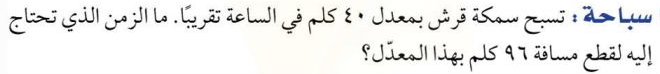 سباحة : تسبح سمكة قرش بمعدل ٤٠ كلم في الساعة تقريبًا. ما الزمن الذي تحتاج
إليه لقطع مسافة ٩٦ كلم بهذا المعدّل؟